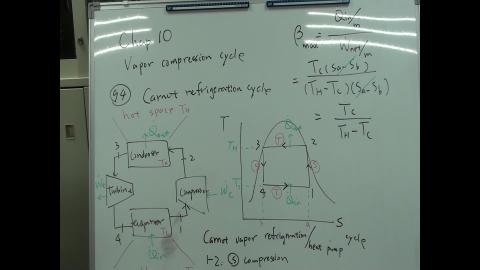 Chap 10
Vapor compression cycle
§4 Carnot refrigeration cycle
hot space TH
Qout
3
Condenser
TH
2
Turbine
Compressor
Wc
4
TC
1
Qin
βmax = Qin/m / Wnet/m
= TC(Sa-Sb) / (TH-TC)(Sa-Sb)
= TC / TH-TC
T
Qout
TH
3
2
4
1
Qin
S
Carnot vapor refrigeration/heat pump cycle
1-2. Ⓢ compression